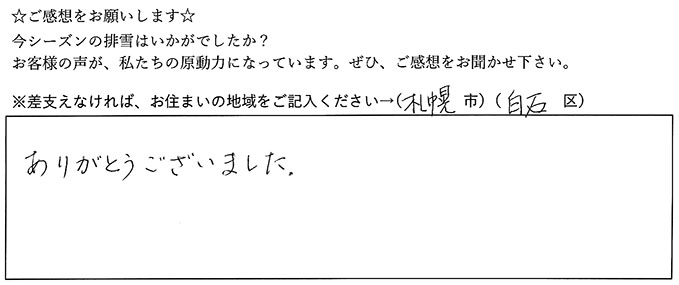 ☆ご感想をお願いします☆
今シーズンの排雪はいかがでしたか？
お客様の声が、私たちの原動力になっています。ぜひ、ご感想をお聞かせ下さい。
※差支えなければ、お住まいの地域をご記入ください→(札幌 市) (白石 区)
ありがとうございました.